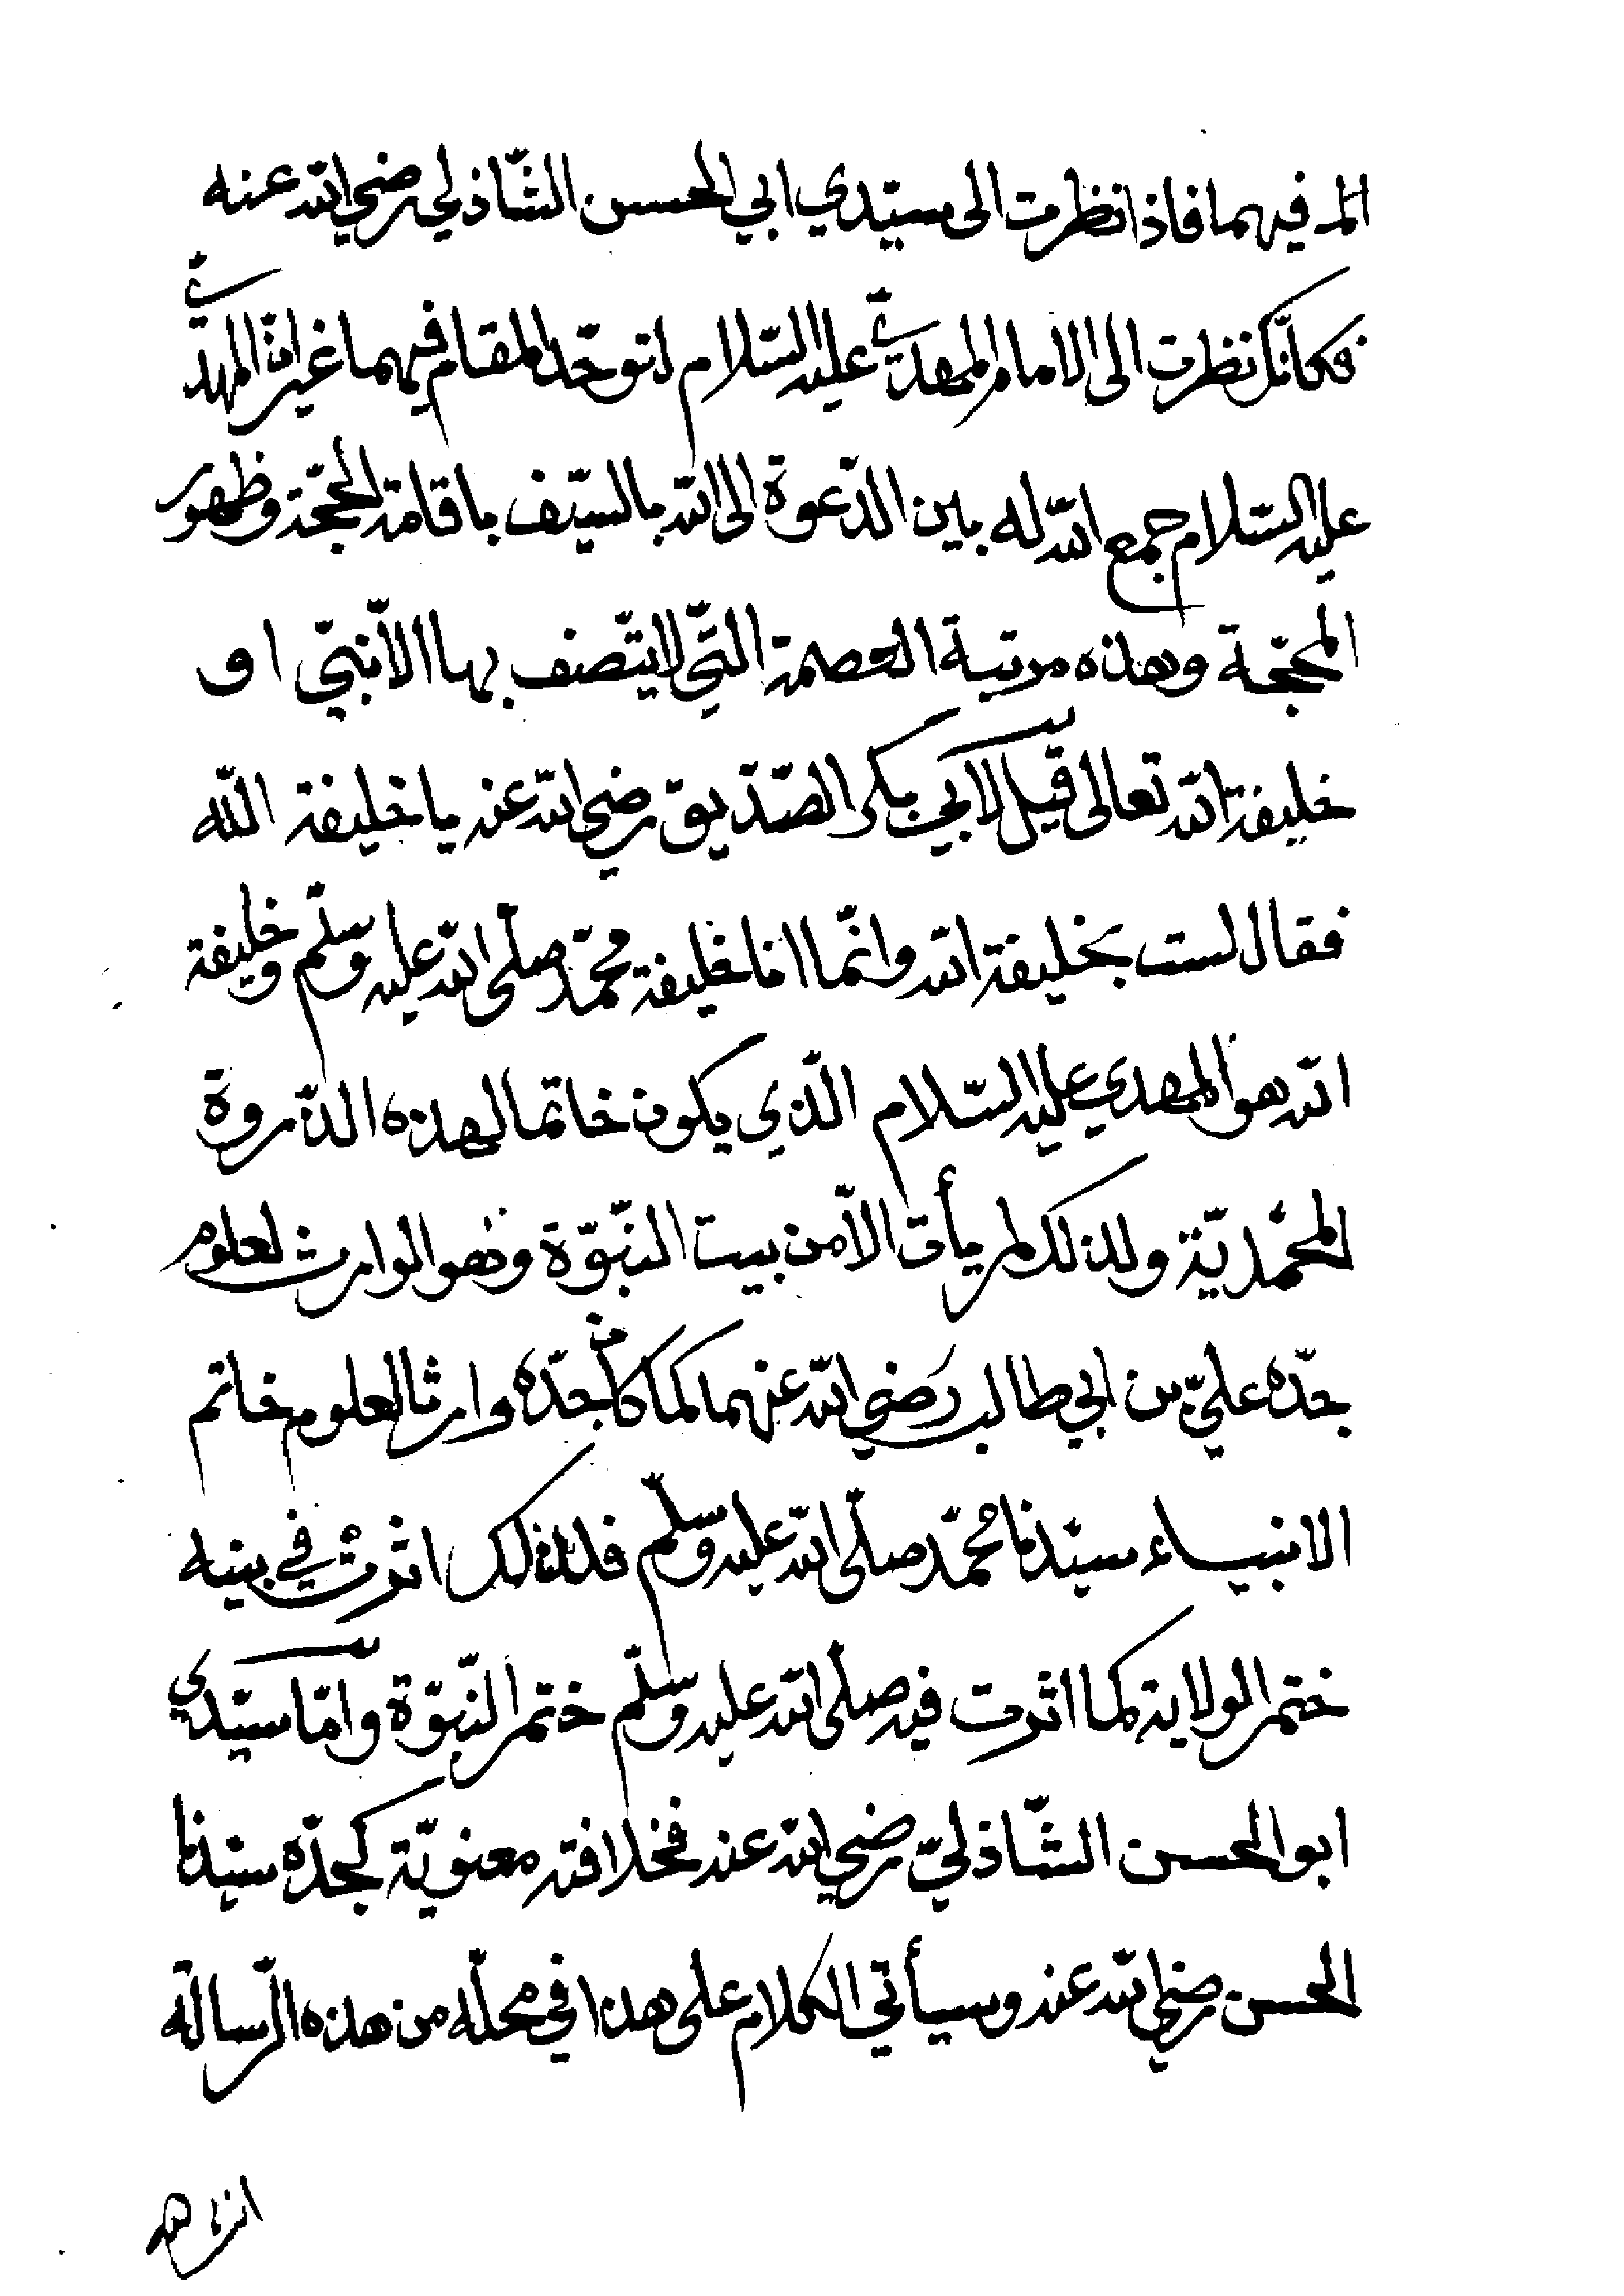 الم فيهما فاذا نظرت الى سيّدي ابي الحسن الشّاذلي رضي الله عنه
فكانّك نظرت الى الامام المهديّ عليه السّلام لتوحّد المقام فيهما غير انّ المهديّ
عليه السّلام جمع الله له بين الدّعوة الى الله بالسّيف باقامة الحجّة وظهور
المحجّة وهذه مرتبة العصمة الّتي لا يتّصف بها الّا نبيّ او
خليفة الله تعالى قيل لابي بكر الصّدّيق رضي الله عنه يا خليفة الله
فقال لست بخليفة الله وانّما انا خليفة محمّد صلّى الله عليه وسلّم وخليفة
الله هو المهدي عليه السّلام الّذي يكون خاتما لهذه الذّروة
المحمّديّة ولذلك لم يأت الّا من بيت النّبوّة وهو الوارث لعلوم
جدّه عليّ بن ابي طالب رضي الله عنهما كما كان جدّه وارثا لعلوم خاتم
الانبياء سيّدنا محمّد صلّى الله عليه وسلّم فلذلك اثرت في بنيه
ختم الولاية كما اثرت فيه صلّى الله عليه وسلّم ختم النّبوّة وامّا سيّدي
ابو الحسن الشّاذليّ رضي الله عنه فخلافته معنويّة كجدّه سيّدنا
الحسن رضي الله عنه وسيأتي الكلام على هذا في محلّه من هذه الرّسالة